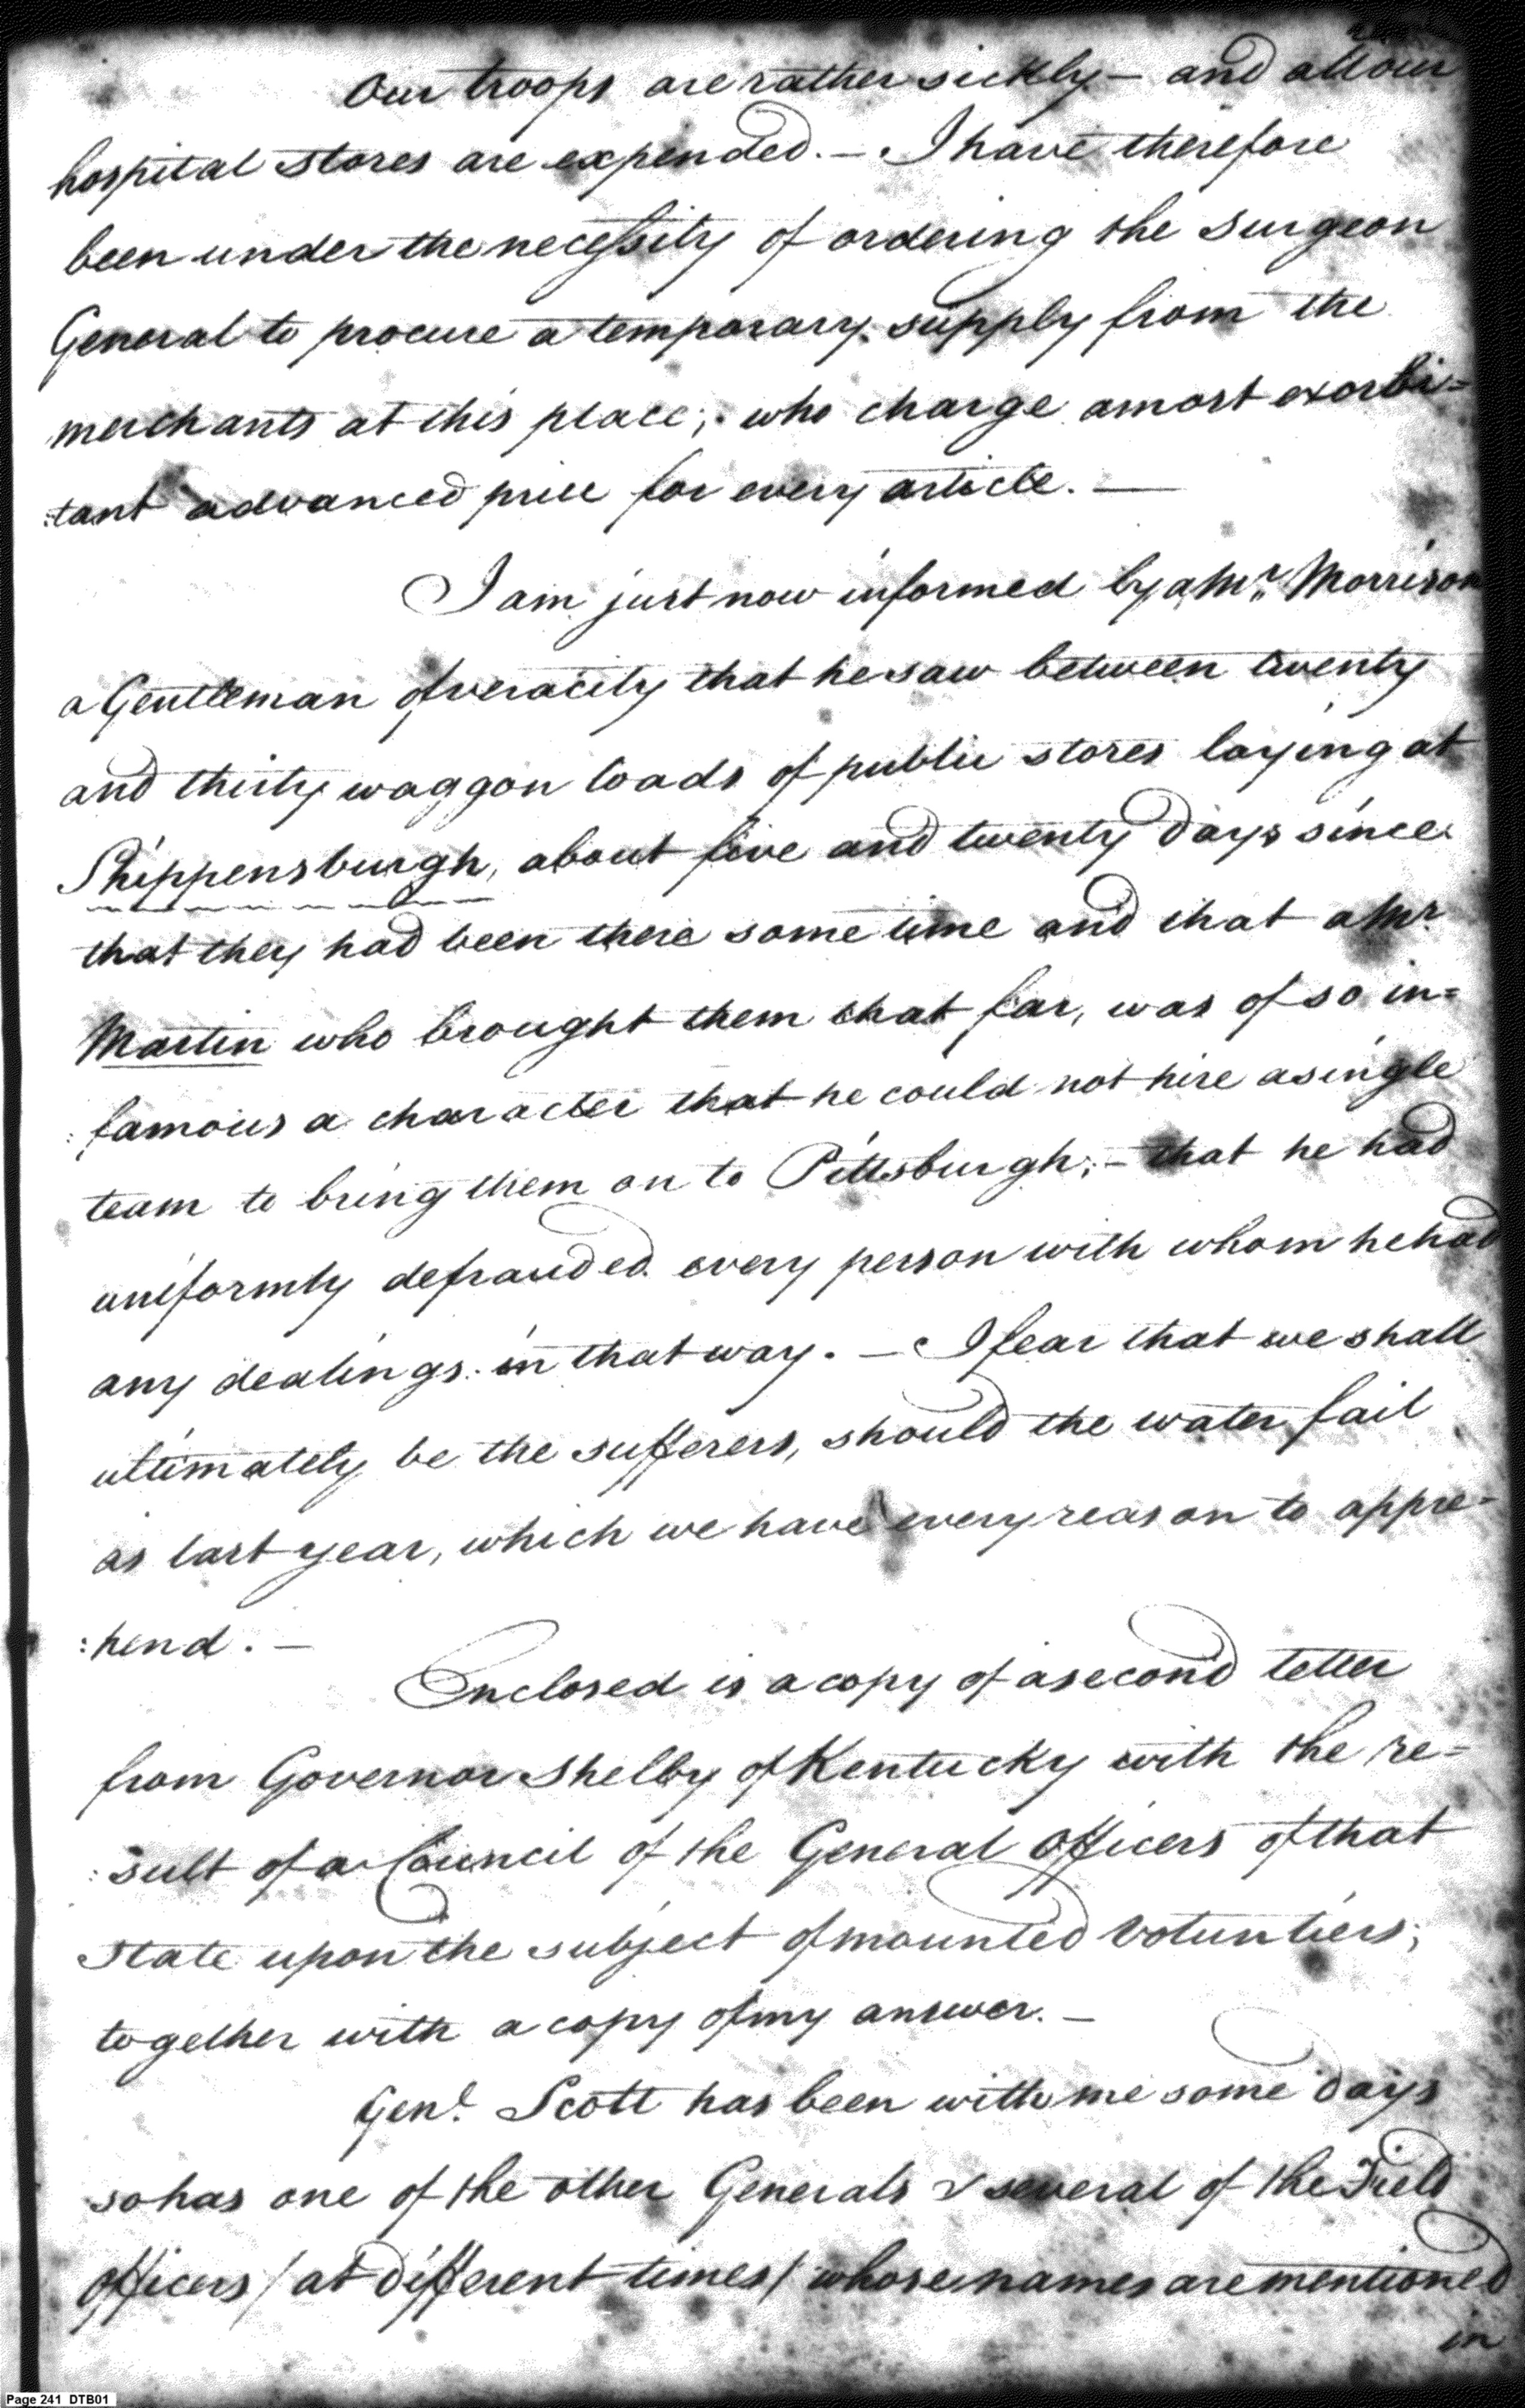 Our troops are rather sickly — and all our
hospital stores are expended. — I have therefore
been under the necessity of ordering the Surgeon
General to procure a temporary supply from the
merchants at this place; who charge a most exorbi=
:tant advanced price for every article. —
I am just now informed by a Mr. Morrison
a Gentleman of veracity that he saw between twenty
and thirty waggon loads of public stores laying at
Shippensburgh, about five and twenty days since
that they had been there some time and that a Mr.
Martin who brought them that far, was of so in=
:famous a character that he could not hire a single
team to bring them on to Pittsburgh; — that he had
uniformly defrauded every person with whom he had
any dealings in that way. — I fear that we shall
ultimately be the sufferers, should the water fail
as last year, which we have every reason to appre=
:hend. —
Enclosed is a copy of a second letter
from Governor Shelby of Kentucky with the re=
:sult of a Council of the General Officers of that
State upon the subject of mounted Voluntiers;
together with a copy of my answer. —
Genl. Scott has been with me some days
so has one of the other Generals & several of the Field
Officers / at different times / whose names are mentioned
in
Page 241 DTB01